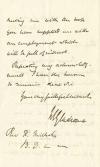 having me with the book
you have supplied me with
an employment which
will be full of interest.
Repeating my acknowledg-
ment I have the honour
to remain Dear Sir
Your very faithful servant
Rev. H.
B. D.